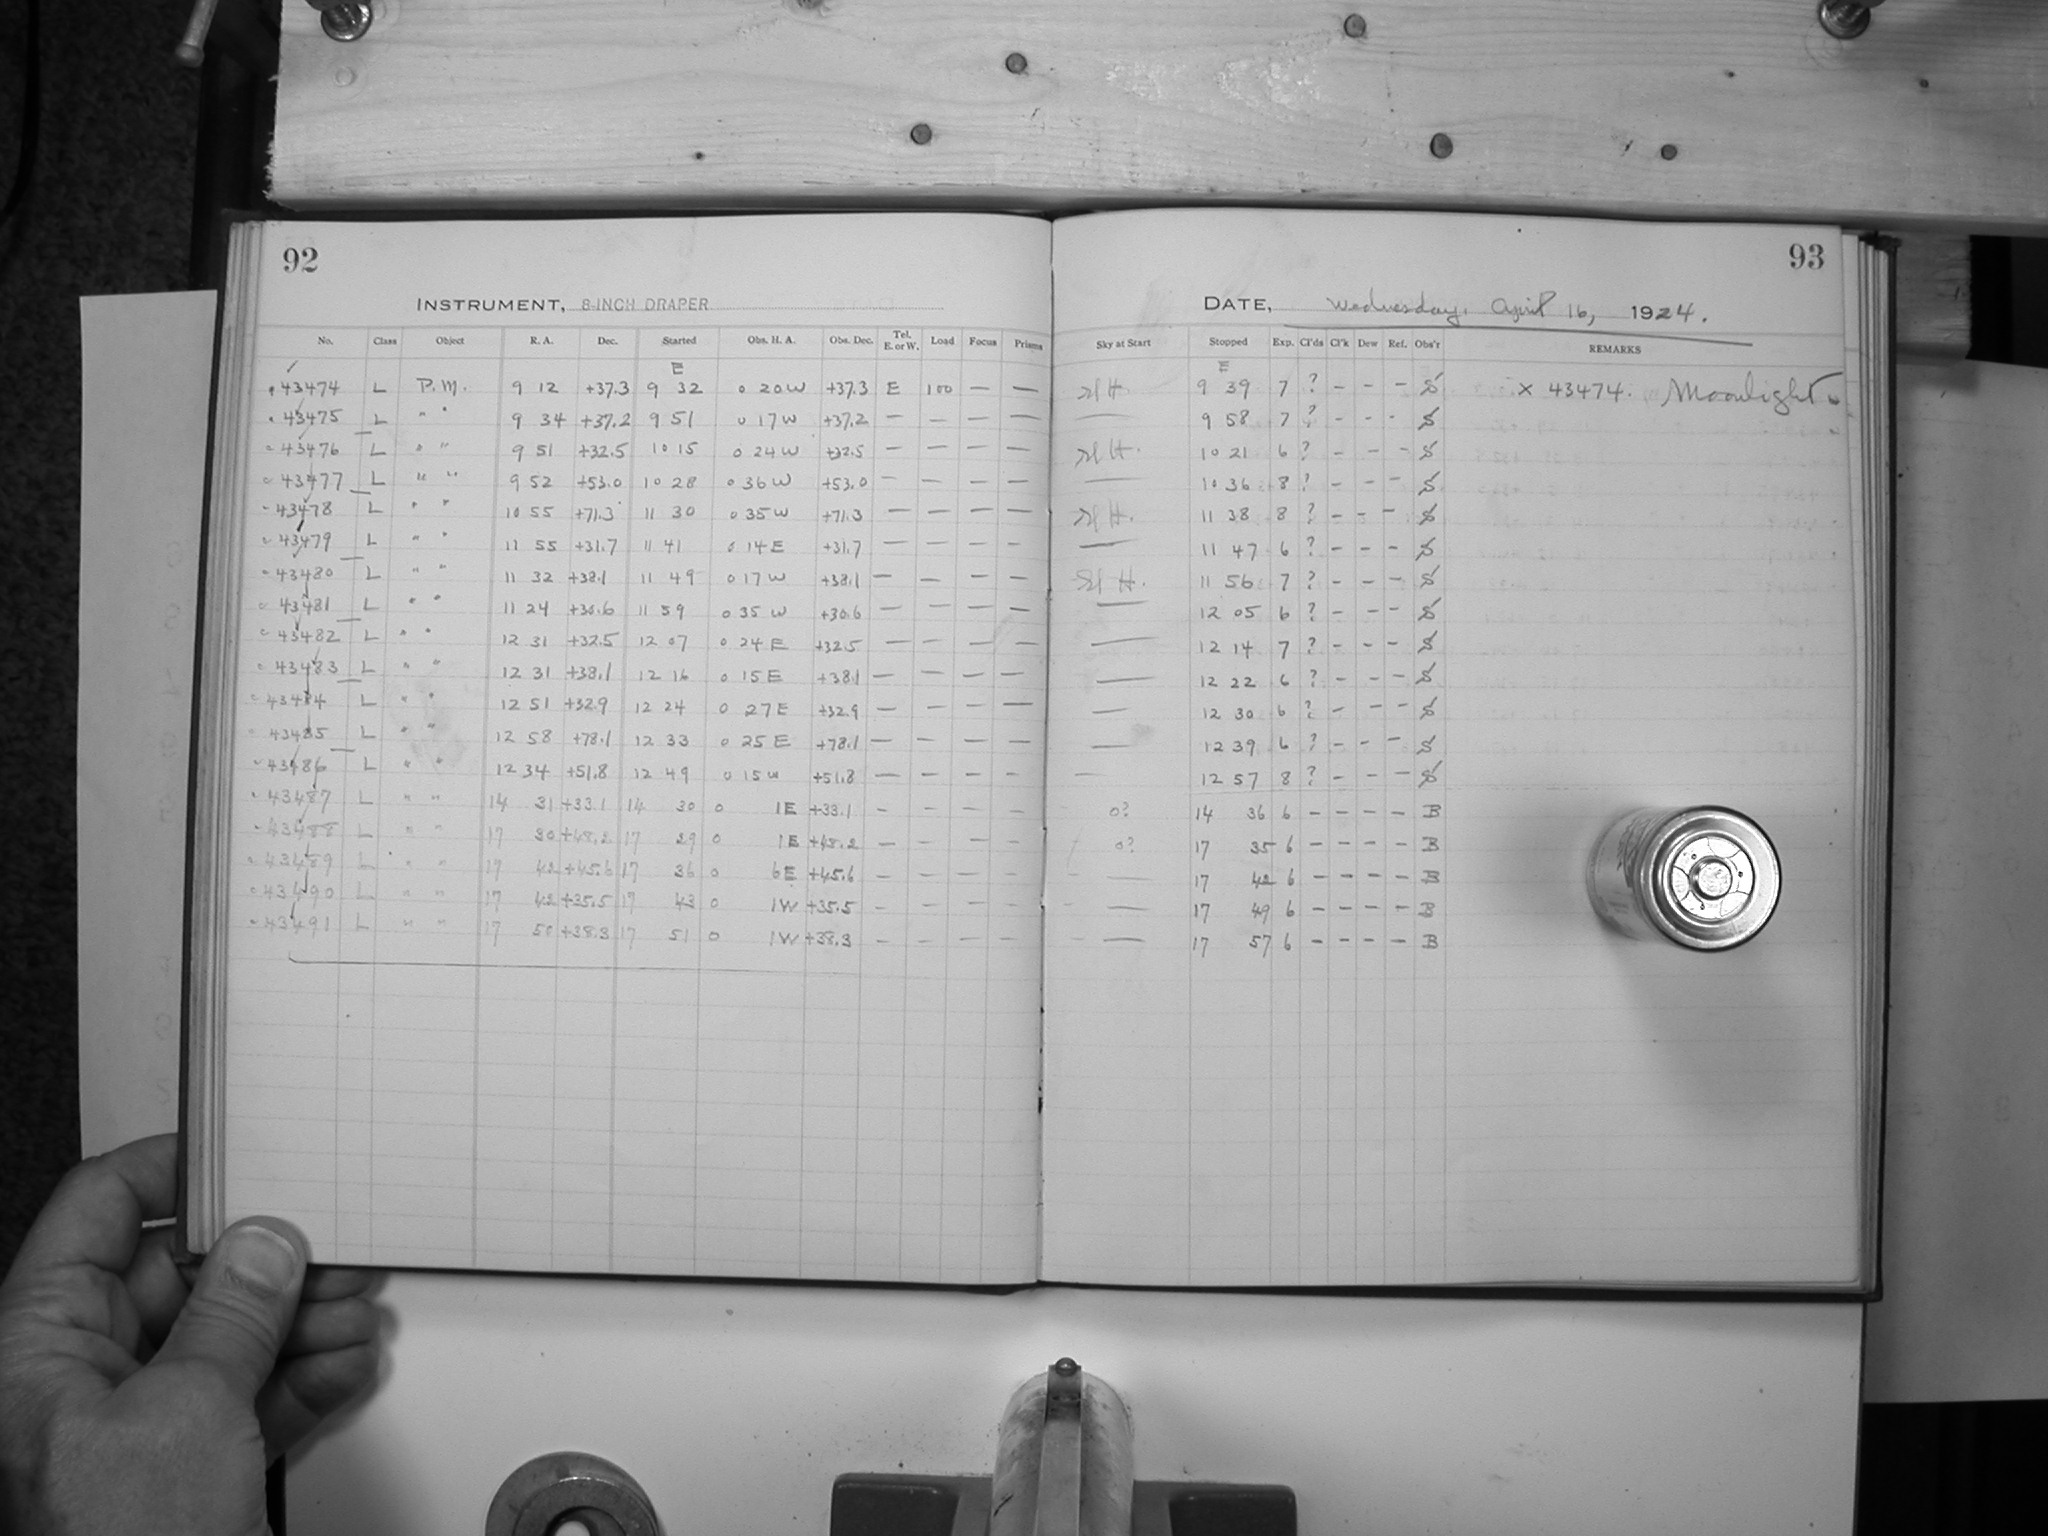 92
INSTRUMENT, 8-INCH DRAPER
No. Class Object R. A. Dec. Started Obs. H. A. Obs. Dec. Tel. E. or W. Load Focus Prisms
E
43474 L P.M. 9 12 +37.3 9 32 0 20 W +37.3 E 100 — —
43475 L " " 9 34 +37.2 9 51 0 17 W +37.2 — — — —
43476 L " " 9 51 +32.5 10 15 0 24 W +32.5 — — — —
43477 L " " 9 52 +53.0 10 28 0 36 W +53.0 — — — —
43478 L " " 10 55 +71.3 11 30 0 35 W +71.3 — — — —
43479 L " " 11 55 +31.7 11 41 0 14 E +31.7 — — — —
43480 L " " 11 32 +38.1 11 49 0 17 W +38.1 — — — —
43481 L " " 11 24 +30.6 11 59 0 35 W +30.6 — — — —
43482 L " " 12 31 +32.5 12 07 0 24 E +32.5 — — — —
43483 L " " 12 31 +38.1 12 16 0 15 E +38.1 — — — —
43484 L " " 12 51 +32.9 12 24 0 27 E +32.9 — — — —
43485 L " " 12 58 +78.1 12 33 0 25 E +78.1 — — — —
43486 L " " 12 34 +51.8 12 49 0 15 W +51.8 — — — —
43487 L " " 14 31 +33.1 14 30 0 1 E +33.1 - - - -
43488 L " " 17 30 +48.2 17 29 0 1 E +48.2 - - - -
43489 L " " 17 42 +45.6 17 36 0 6 E +45.6 - - - -
43490 L " " 17 42 +35.5 17 43 0 1 W +35.5 - - - -
43491 L " " 17 +38.3 17 51 0 1 W +38.3 - - - -
93
DATE, Wednesday, April 16, 1924.
Sky at Start Stopped Exp. Cl'ds Cl'k Dew Ref. Obs'r REMARKS
E
H. 9 39 7 ? - - - S × 43474. Moonlight
— 9 58 7 ? - - - S
H. 10 21 6 ? - - - S
— 10 36 8 ? - - - S
H. 11 38 8 ? - - - S
— 11 47 6 ? - - - S
H. 11 56 7 ? - - - S
— 12 05 6 ? - - - S
— 12 14 7 ? - - - S
— 12 22 6 ? - - - S
— 12 30 6 ? - - - S
— 12 39 6 ? - - - S
— 12 57 8 ? - - - S
0? 14 36 6 - - - - B
0? 17 35 6 - - - - B
— 17 42 6 - - - - B
— 17 49 6 - - - - B
— 17 57 6 - - - - B